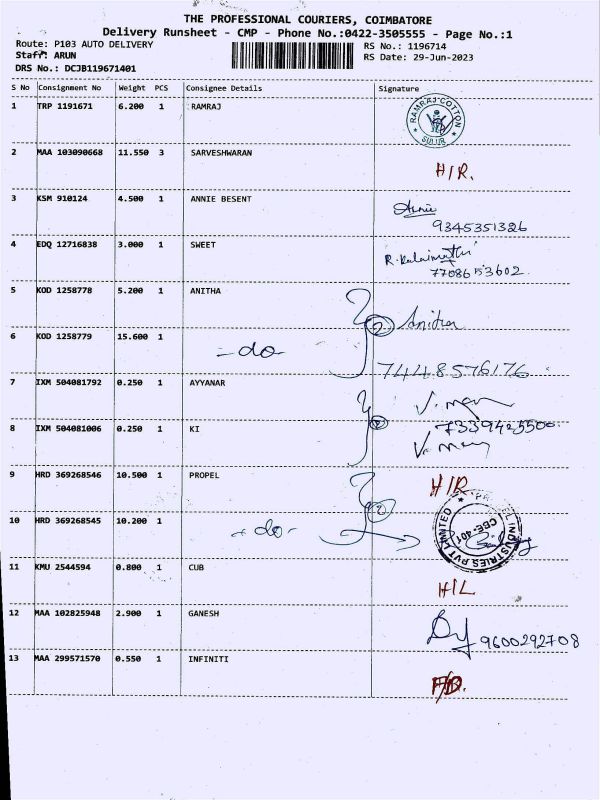 THE PROFESSIONAL COURIERS, COIMBATORE
Delivery Runsheet - CMP - Phone No.:0422-3505555 - Page No.:1
Route: P103 AUTO DELIVERY RS No.: 1196714
Staff: ARUN RS Date: 29-Jun-2023
DRS No.: DCJB119671401
S No Consignment No Weight PCS Consignee Details Signature
1 TRP 1191671 6.200 1 RAMRAJ RAMRAJ COTTON SULUR
2 MAA 103090668 11.550 3 SARVESHWARAN H/R.
3 KSM 910124 4.500 1 ANNIE BESENT Annie
9345351326
4 EDQ 12716838 3.000 1 SWEET
7708653602
5 KOD 1258778 5.200 1 ANITHA 2 Anitha
6 KOD 1258779 15.600 1 -do-
7448576176
7 IXM 504081792 0.250 1 AYYANAR
8 IXM 504081006 0.250 1 KI 2 7339425500
9 HRD 369268546 10.500 1 PROPEL H/R.
10 HRD 369268545 10.200 1 -do- 2 INDUSTRIES PVT LIMITED CBE-401
11 KMU 2544594 0.800 1 CUB H/L
12 MAA 102825948 2.900 1 GANESH 9600292708
13 MAA 299571570 0.550 1 INFINITI